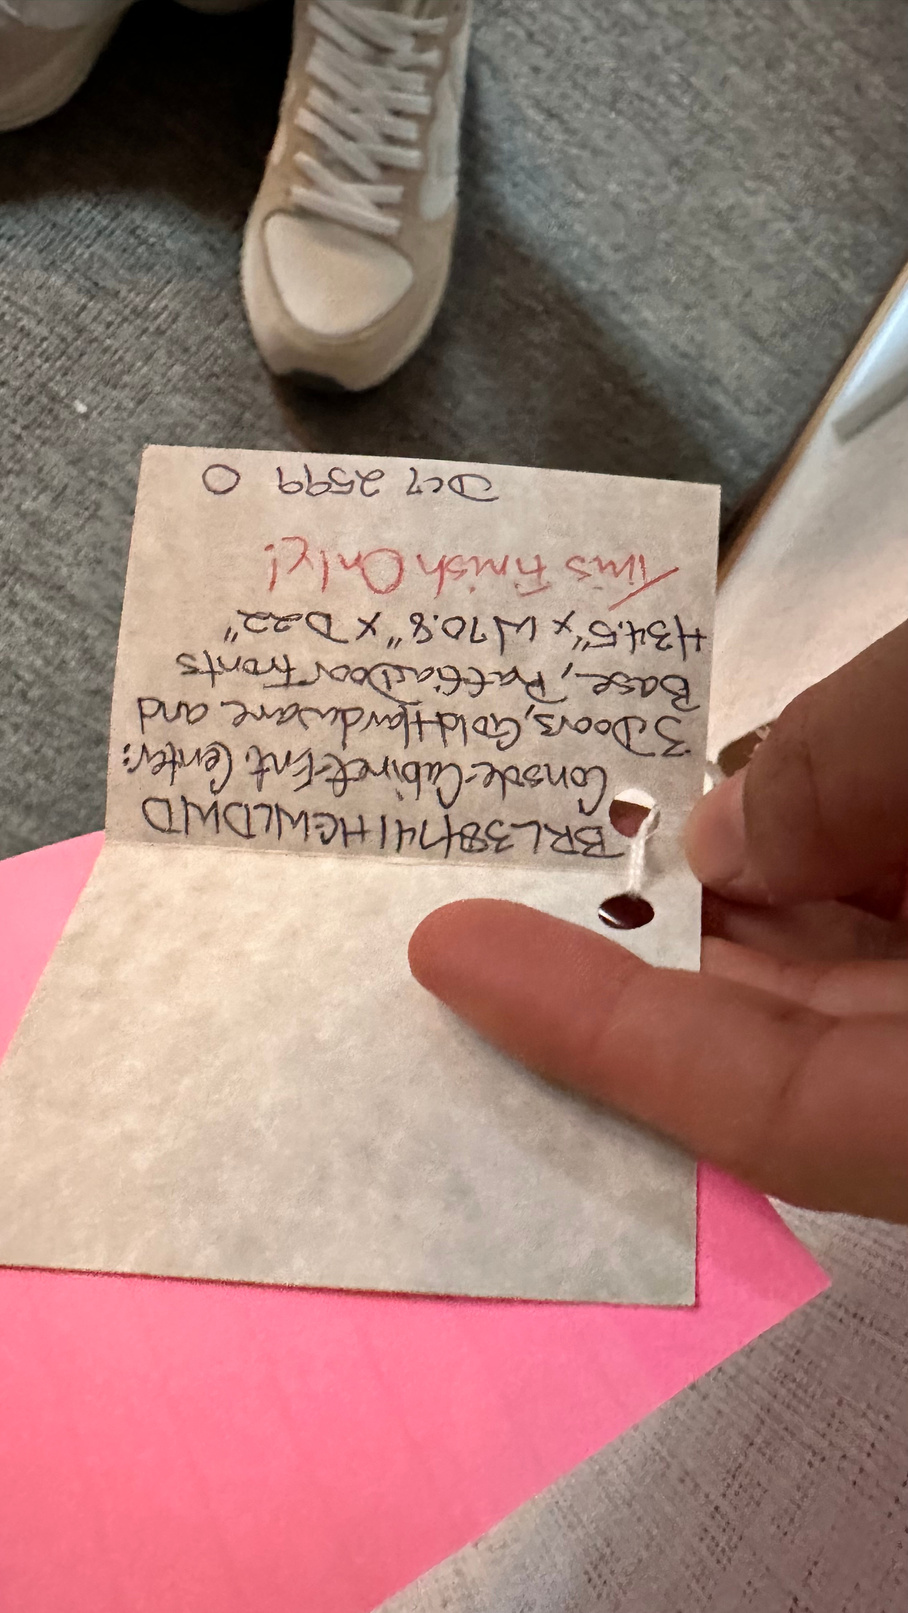 BRL38H741HGWLDWD
Console-Cabinet-Ent. Center:
3 Doors, Gold Hardware and
Base, Partial Door Fronts
H34.5" x W70.8" x D22"
This Finish Only!
2599 O